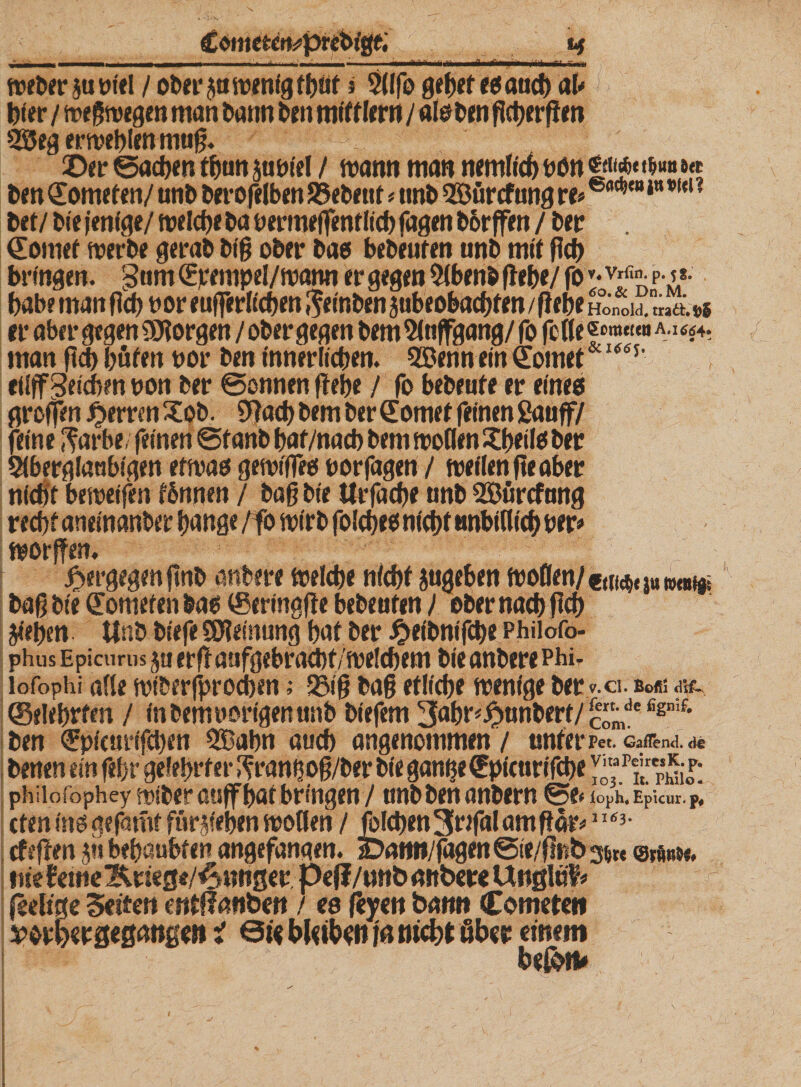 Cometen⸗predigt. 15
weder zu viel / oder zu wenig thut; Also gehet es auch al⸗
hier / weßwegen man dann den mittlern / als den sichersten
Weg erwehlen muß.
Der Sachen thun zuviel / wann man nemlich von
den Cometen/ und deroselben Bedeut⸗und Würckung re⸗
det/ die jenige/ welche da vermessentlich sagen dörffen / der
Comet werde gerad diß oder das bedeuten und mit sich
bringen. Zum Exempel/wann er gegen Abend stehe/ so
habe man sich vor eusserlichen Feinden zubeobachten/stehe
er aber gegen Morgen / oder gegen dem Auffgang/ so solle
man sich hüten vor den innerlichen. Wenn ein Comet
eilff Zeichen von der Sonnen stehe / so bedeute er eines
grossen Herren Tod. Nach dem der Comet seinen Lauff/
seine Farbe/ seinen Stand hat/nach dem wollen Theils der
Aberglaubigen etwas gewisses vorsagen / weilen sie aber
nicht beweisen können / daß die Ursache und Würckung
recht aneinander hange / so wird solches nicht unbillich ver⸗
worffen.
Hergegen sind andere welche nicht zugeben wollen/
daß die Cometen das Geringste bedeuten / oder nach sich
ziehen. Und diese Meinung hat der Heidnische Philoso-
phus Epicurus zu erst aufgebracht/welchem die andere Phi-
losophi alle widersprochen; Biß daß etliche wenige der
Gelehrten / in dem vorigen und diesem Jahr⸗Hundert/
den Epicurischen Wahn auch angenommen / unter
denen ein sehr gelehrter Frantzoß/der die gantze Epicurische
philosophey wider auff hat bringen / und den andern Se⸗
cten ins gesamt fürziehen wollen / solchen Irrsal am stär⸗
ckesten zu behaubten angefangen. Dann/sagen Sie/sind
nie keine Kriege/Hunger Pest/und andere Unglük⸗
seelige Zeiten entstanden / es seyen dann Cometen
vorhergegangen? Sie bleiben ja nicht über einem
beson⸗
Etliche thun der
Sachen zu viel?
v. Vrsin. p. 58.
60. & Dn. M.
Honold. tract. vō
Cometen A. 1664.
& 1665.
Etliche zu wenig;
v. Cl. Bosii dis-
sert. de signif.
Com.
Pet. Gassend. de
Vita Peiresk. p.
103. It. Philo-
soph. Epicur. p.
1163.
Ihre Gründe.